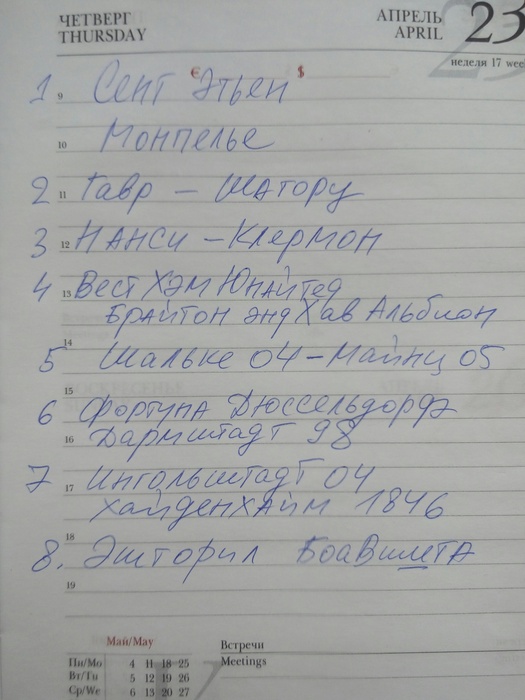 ЧЕТВЕРГ
THURSDAY
АПРЕЛЬ
APRIL
23
неделя 17 wee
€ $
1 9 Сент Этьен
10 Монпелье
2 11 Гавр – Шатору
3 12 Нанси – Клермон
4 13 Вест Хэм Юнайтед
Брайтон энд Хав Альбион
14
5 Шальке 04 – Майнц 05
15
6 Фортуна Дюссельдорф
16 Дармштадт 98
7 17 Ингольштадт 04
Хайденхайм 1846
18
8. Эшторил Боавишта
19
Май/May
Пн/Mo 4 11 18 25
Вт/Tu 5 12 19 26
Ср/We 6 13 20 27
Встречи
Meetings